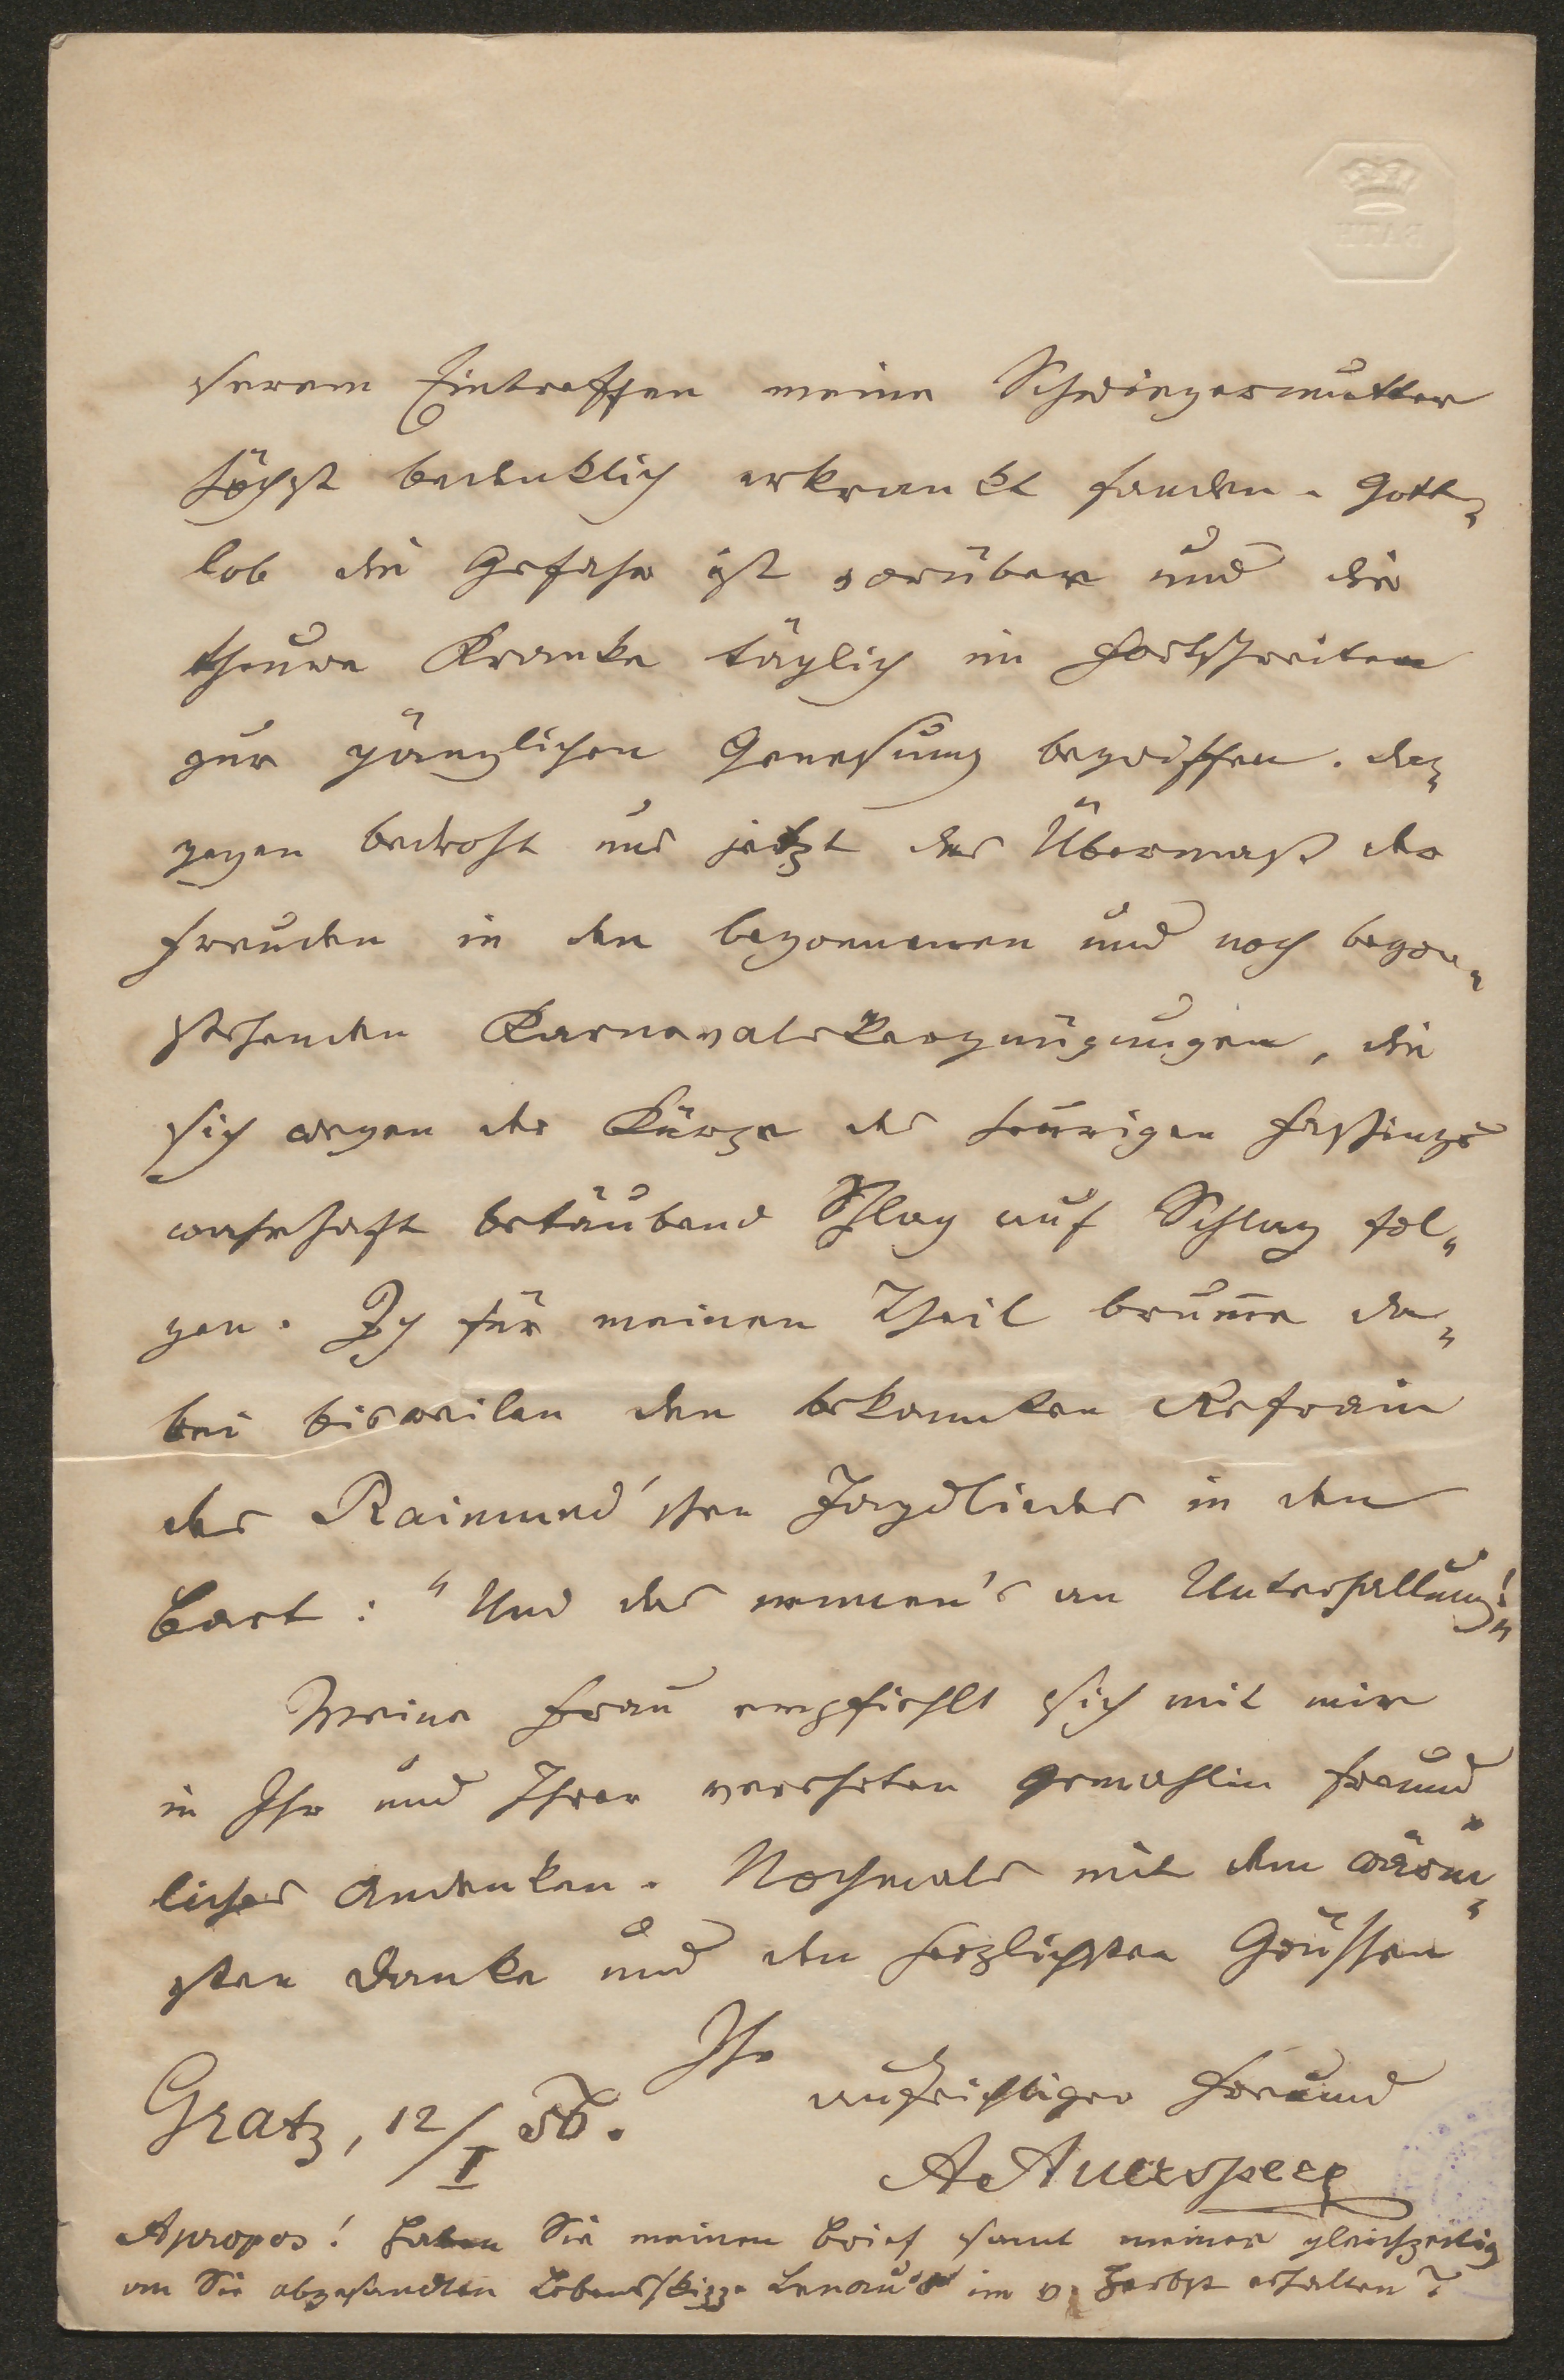 serem Eintreffen meine Schwiegermutter
höchst bedenklich erkrankt fanden. Gott-
lob die Gefahr ist vorüber und die
theure Kranke täglich im Fortschreiten
zur gänzlichen Genesung begriffen. Da-
gegen bedroht uns jetzt das Übermaß der
Freuden in den begonnenen und noch bevor-
stehenden Karnevalsvergnügungen, die
sich wegen der Kürze des heurigen Faschings
wahrhaft betäubend Schlag auf Schlag fol-
gen. Ich für meinen Theil brum̅e da-
bei bisweilen den bekannten Refrain
des Raimund'schen Jagdliedes in den
Bart: "Und das nennen's an Unterhaltung!"
Meine Frau empfiehlt sich mit mir
in Ihr und Ihrer verehrten Gemahlin freund-
liches Andenken. Nochmals mit dem wärm-
sten Danke und den herzlichsten Grüssen
Ihr
aufrichtiger Freund
Gratz, 12/I 56.
A Auersperg
Apropos! Haben Sie meinen Brief samt meiner gleichzeitig
an Sie abgesandten Lebensskizze Lenau's im v. Herbst erhalten?
BATH